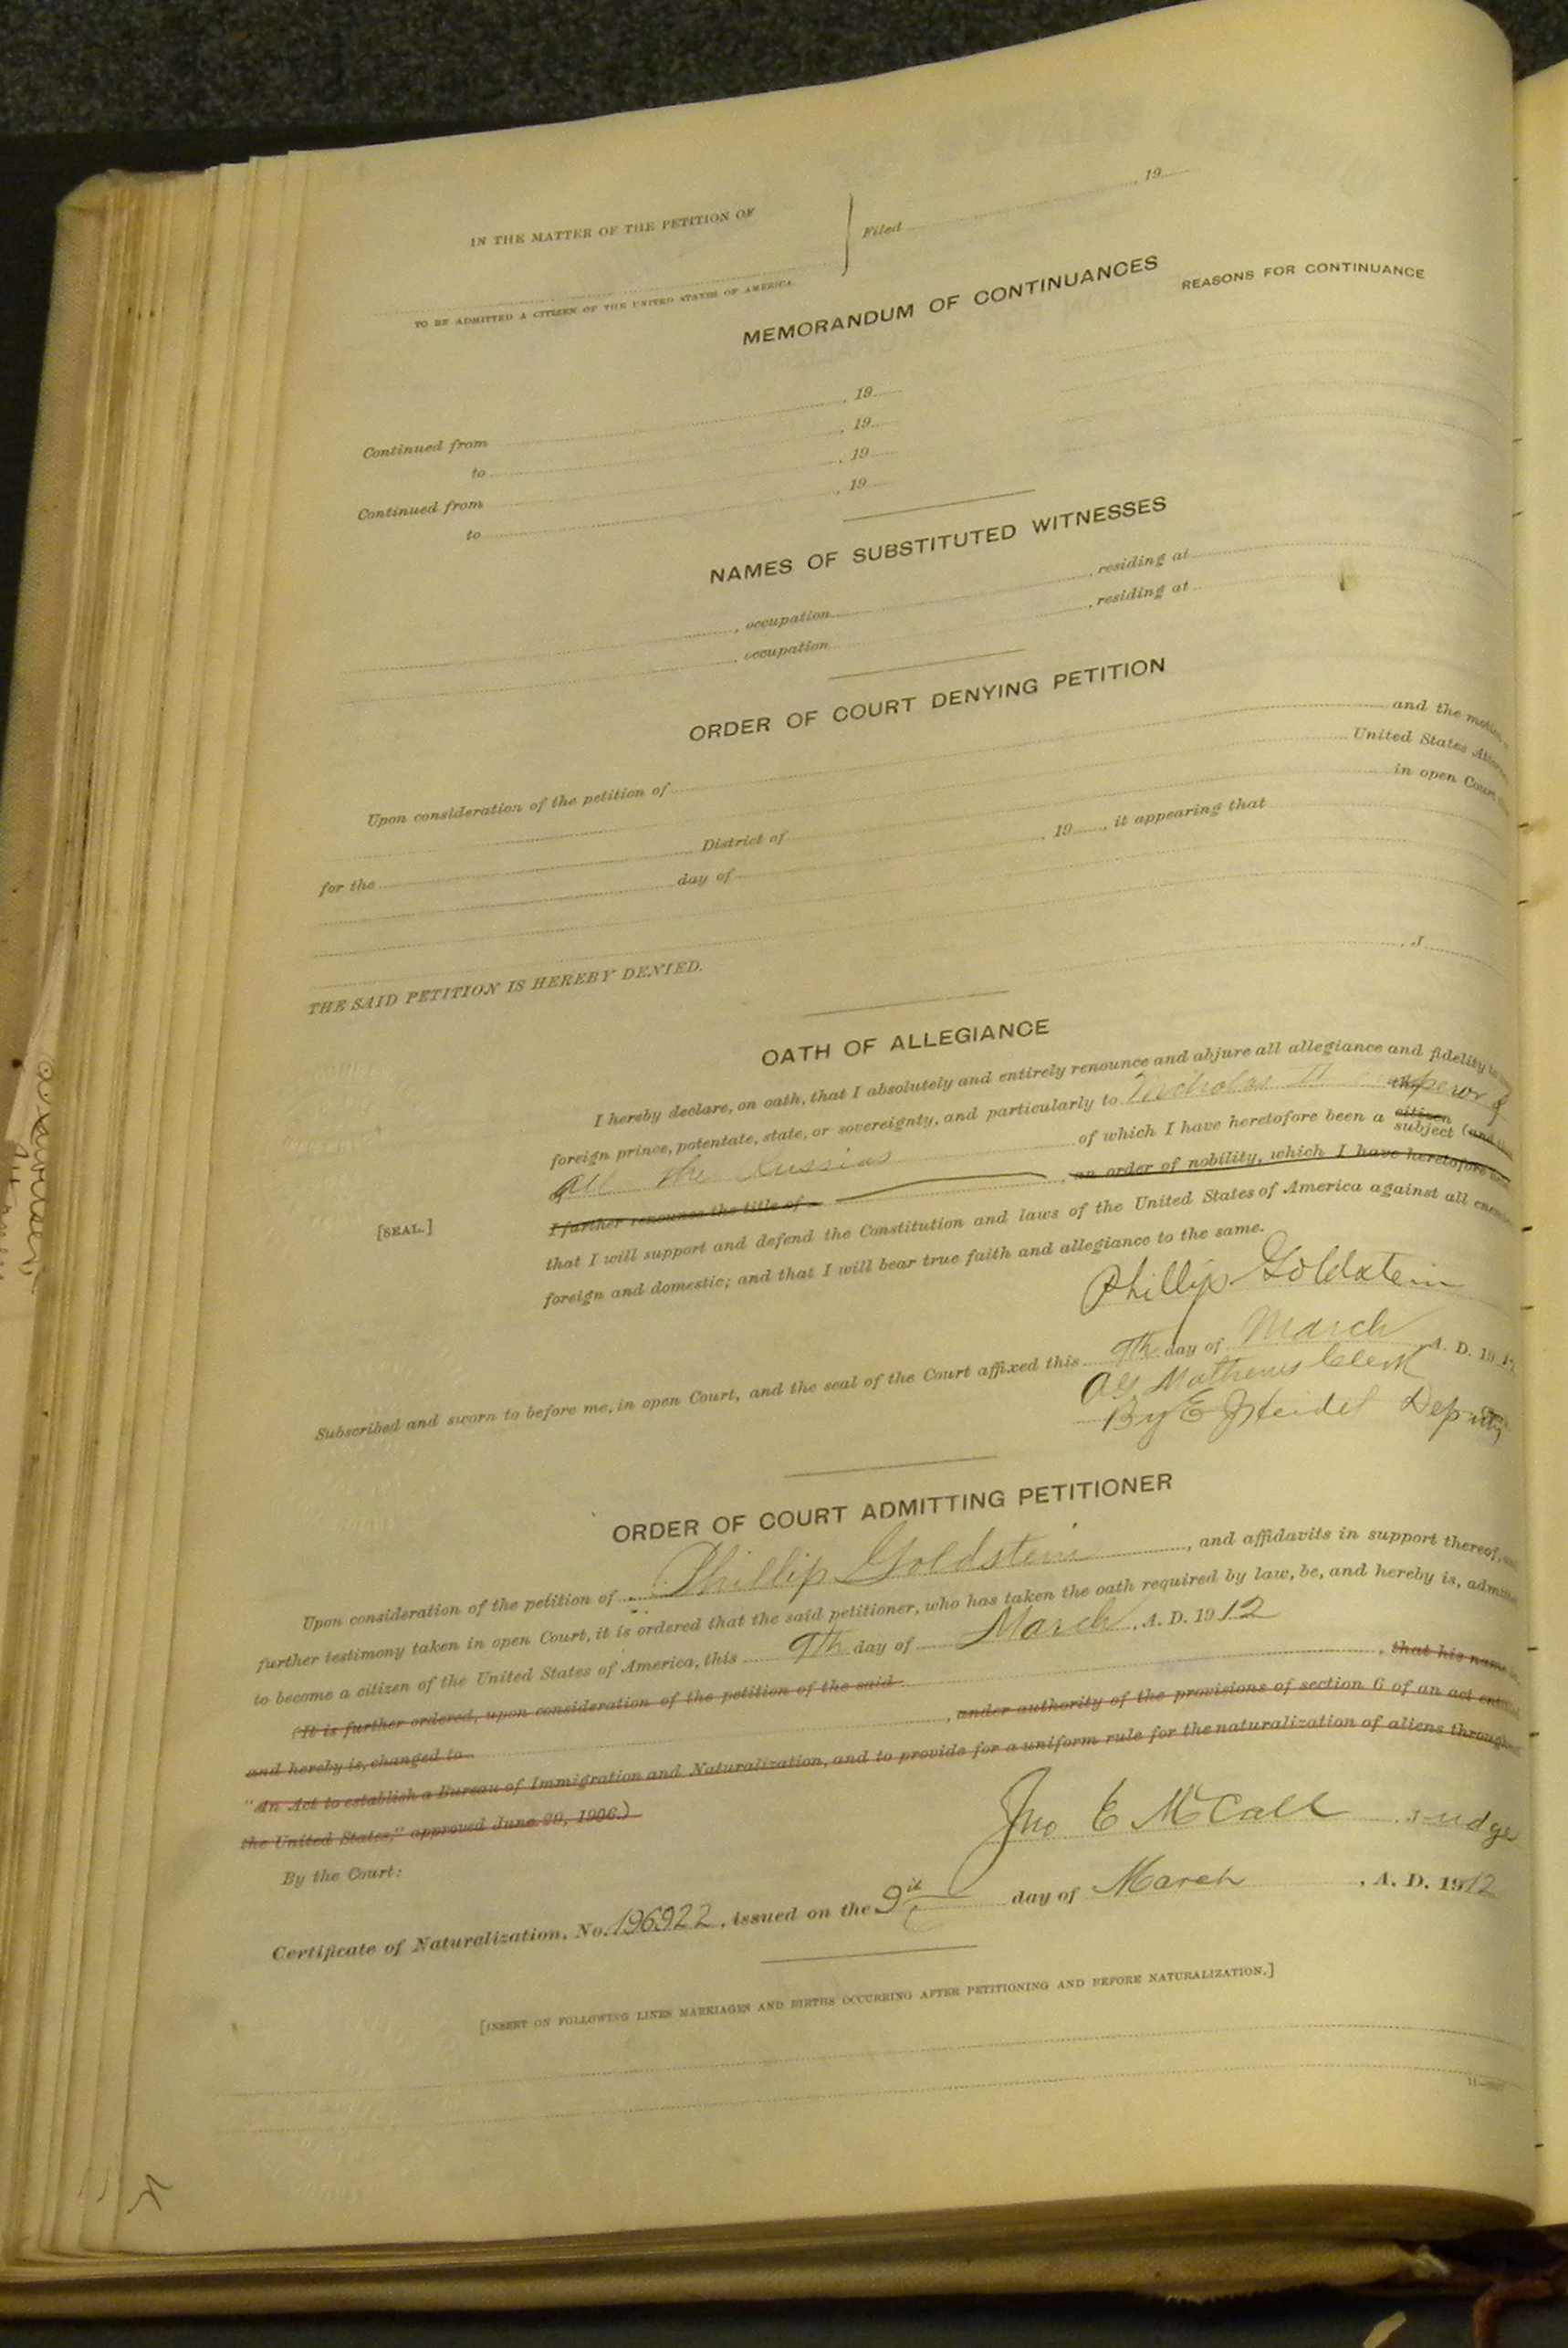 IN THE MATTER OF THE PETITION OF
Filed , 19
TO BE ADMITTED A CITIZEN OF THE UNITED STATES OF AMERICA.
MEMORANDUM OF CONTINUANCES
REASONS FOR CONTINUANCE
Continued from , 19
to , 19
Continued from , 19
to , 19
NAMES OF SUBSTITUTED WITNESSES
, occupation , residing at
, occupation , residing at
ORDER OF COURT DENYING PETITION
Upon consideration of the petition of and the motion
United States
for the District of in open Court
day of , 19 , it appearing that
THE SAID PETITION IS HEREBY DENIED.
, J
OATH OF ALLEGIANCE
I hereby declare, on oath, that I absolutely and entirely renounce and abjure all allegiance and fidelity to
foreign prince, potentate, state, or sovereignty, and particularly to Nicholas II emperor of
all the Russias of which I have heretofore been a citizen subject (and
I further renounce the title of , an order of nobility, which I have heretofore
[SEAL.]
that I will support and defend the Constitution and laws of the United States of America against all enemies
foreign and domestic; and that I will bear true faith and allegiance to the same.
Phillip Goldstein
Subscribed and sworn to before me, in open Court, and the seal of the Court affixed this 9th day of March A. D. 19
Mathews Clerk
By E Heidel Deputy
ORDER OF COURT ADMITTING PETITIONER
Upon consideration of the petition of Phillip Goldstein , and affidavits in support thereof,
further testimony taken in open Court, it is ordered that the said petitioner, who has taken the oath required by law, be, and hereby is, admitted
to become a citizen of the United States of America, this 9th day of March , A. D. 19 12
(It is further ordered, upon consideration of the petition of the said , that his name
and hereby is, changed to , under authority of the provisions of section 6 of an act
"An Act to establish a Bureau of Immigration and Naturalization, and to provide for a uniform rule for the naturalization of aliens throughout
the United States," approved June 29, 1906.)
By the Court:
Jno E McCall Judge
Certificate of Naturalization, No. 196922, issued on the 9th day of March , A. D. 1912
[INSERT ON FOLLOWING LINES MARRIAGES AND BIRTHS OCCURRING AFTER PETITIONING AND BEFORE NATURALIZATION.]